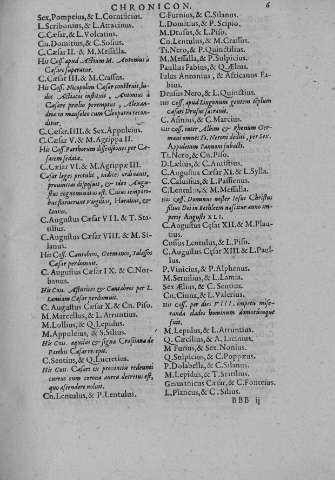 CHRONICON. 6
Sex. Pompeius, & L. Cornificius.
L. Scribonius, & L. Atracinus.
C. Cæsar, & L. Volcatius.
Cn. Domitius, & C. Sosius.
C. Cæsar II. & M. Messalla.
His Coss. apud Actium M. Antonius à
Cæsare superatur.
C. Cæsar III. & M. Crassus.
His Coss. Nicopolim Cæsar construit, ludos
Actiacos instituit, Antonius à
Cæsare prælio peremptus, Alexandrea
in mausoleo cum Cleopatra reconditur.
C. Cæsar IIII. & Sex. Appuleius.
C. Cæsar V. & M. Agrippa II.
His Coss. Parthorum dissensiones per Cæsarem
sedatæ.
C. Cæsar VI. & M. Agrippa III.
Cæsar leges protulit, iudices ordinavit,
provincias disposuit, & ideo Augustus
cognominatus est.
Horatius, &
C. Augustus Cæsar VII. & T. Statilius.
C. Augustus Cæsar VIII. & M. Silanus.
His Coss. Cantabros, Germanos, Salassos
Cæsar perdomuit.
C. Augustus Cæsar IX. & C. Norbanus.
His Coss. Astures & Cantabros per L.
Lamiam Cæsar perdomuit.
C. Augustus Cæsar X. & Cn. Piso.
M. Marcellus, & L. Arruntius.
M. Lollius, & Q. Lepidus.
M. Appuleius, & S. Silius.
His Coss. aquilas & signa Crassiana de
Parthis Cæsar recepit.
C. Sentius, & Q. Lucretius.
His Coss. Cæsari ex provinciis redeunti
currus cum corona aurea decretus est,
quo ascendere noluit.
Cn. Lentulus, & P. Lentulus.
C. Furnius, & C. Silanus.
L. Domitius, & P. Scipio.
M. Drusus, & L. Piso.
Cn. Lentulus, & M. Crassus.
Ti. Nero, & P. Quinctilius.
M. Messalla, & P. Sulpicius.
Paullus Fabius, & Q. Ælius.
Iulus Antonius, & Africanus Fabius.
Drusus Nero, & L. Quinctius.
His Coss. apud Lingonum gentem templum
Cæsari Drusus sacravit.
C. Asinius, & C. Marcius.
His Coss. inter Albim & Rhenum Germani
omnes Ti. Neroni dediti, per Sex.
Appuleium Pannonii subacti.
Ti. Nero, & Cn. Piso.
D. Lælius, & C. Antistius.
C. Augustus Cæsar XI. & L. Sylla.
C. Calvisius, & L. Passienus.
C. Lentulus, & M. Messalla.
His Coss. Dominus noster Iesus Christus
filius Dei in Bethleem nascitur anno imperij
Augusti XLI.
C. Augustus Cæsar XII. & M. Plautius.
Cossus Lentulus, & L. Piso.
C. Augustus Cæsar XIII & L. Paullus.
P. Vinicius, & P. Alphenus.
M. Servilius, & L. Lamia.
Sex Ælius, & C. Sentius.
Cn. Cinna, & L. Valerius.
His Coss. per dies VIII. impetu miseranda
clades hominum domorúmque
fuit.
M. Lepidus, & L. Arruntius.
Q. Cæcilius, & A. Licinius.
M Furius, & Sex. Nonius.
Q. Sulpicius, & C. Poppæus.
P. Dolabella, & C. Silanus.
M. Lepidus, & T. Statilius.
Germanicus Cæsar, & C. Fonteius.
L. Plancus, & C. Silius.
BBB ij